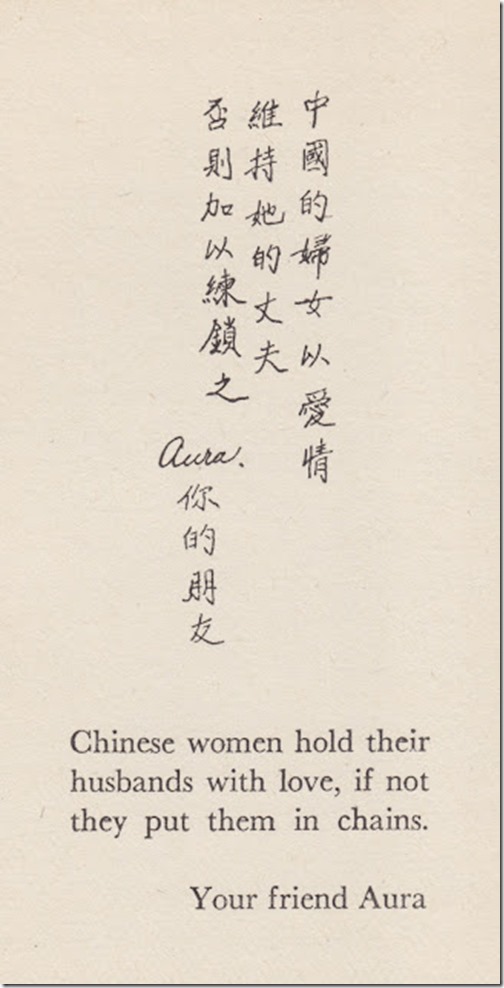 中國的婦女以愛情
維持她的丈夫
否則加以練鎖之
Aura.
你的朋友
Chinese women hold their
husbands with love, if not
they put them in chains.
Your friend Aura